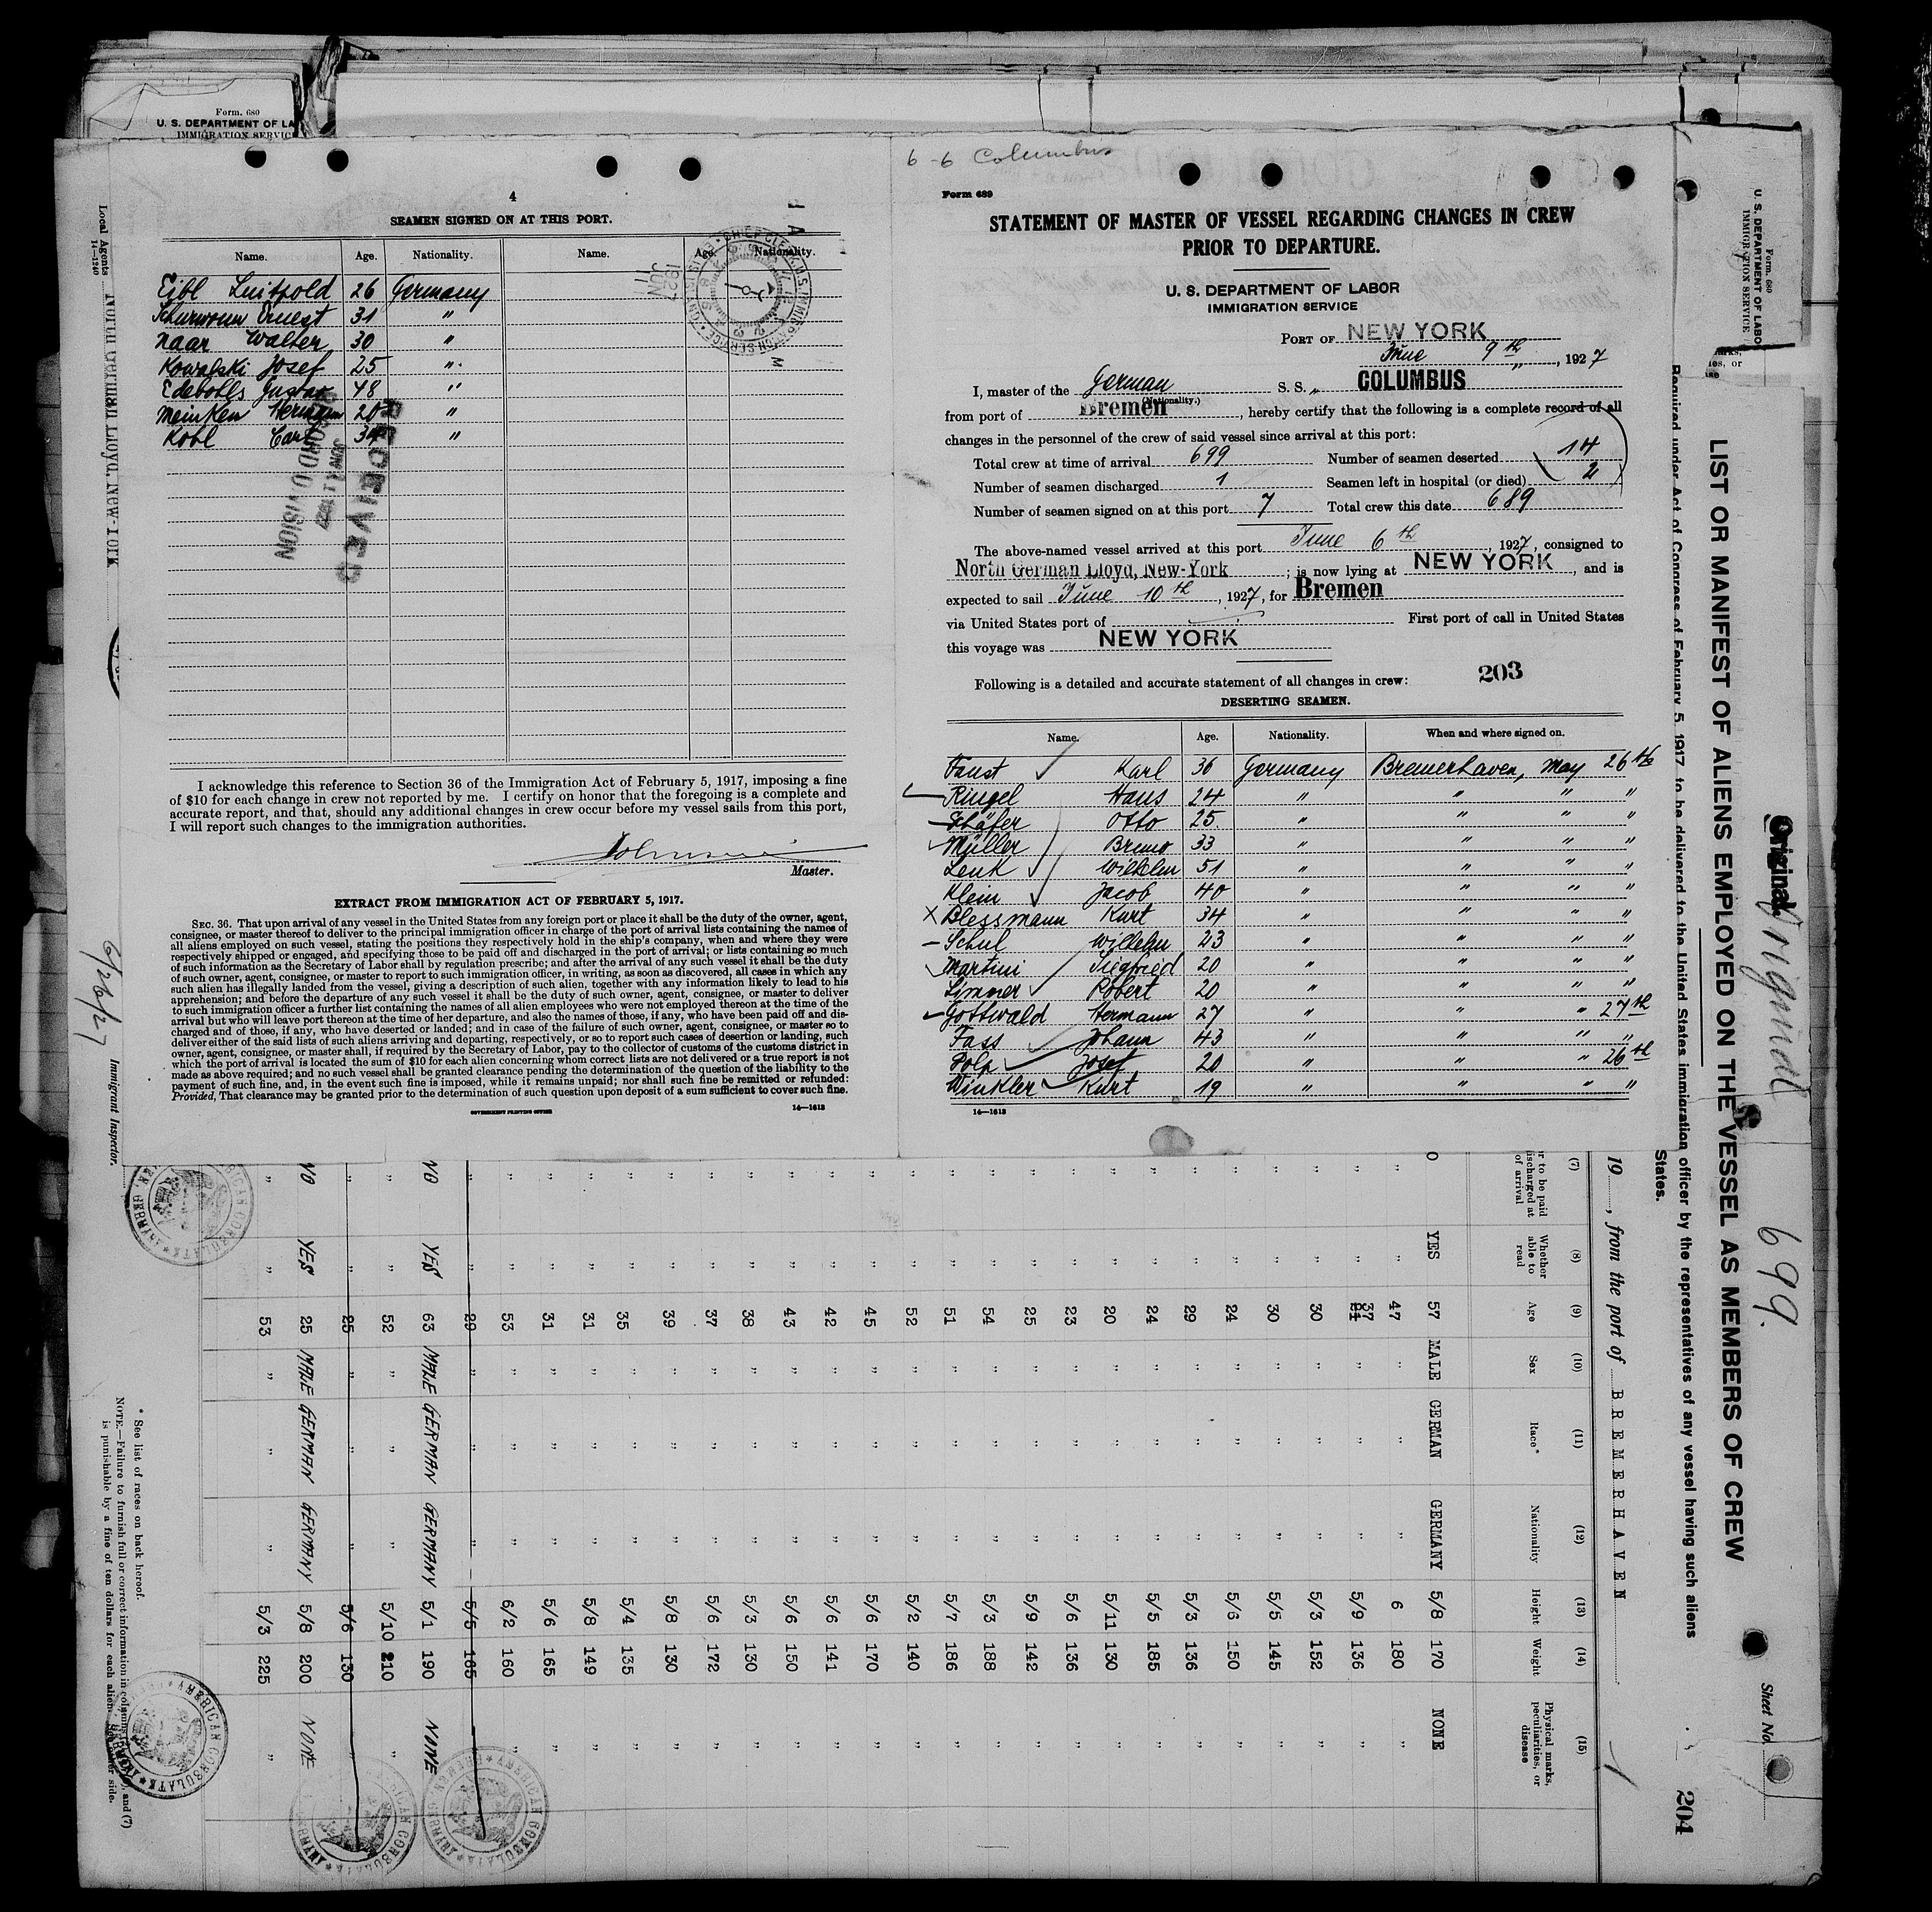 6-6 Columbus
Form. 680
U. S. DEPARTMENT OF LA
IMMIGRATION SERVIC
Local Agents
14—1240
North German Lloyd, New-York
6/26/27
Immigrant Inspector.
4
SEAMEN SIGNED ON AT THIS PORT.
Name. Age. Nationality. Name. Age. Nationality.
Luitpold 26 Germany
Ernest 31 "
Naar Walter 30 "
Kowalski Josef 25 "
Gustav 48 "
Meinken Hermann 20 "
Kobl Carl 34 "
RECEIVED
JUN 11 1927
RECORD DIVISION
1927
JUN
11
I acknowledge this reference to Section 36 of the Immigration Act of February 5, 1917, imposing a fine
of $10 for each change in crew not reported by me. I certify on honor that the foregoing is a complete and
accurate report, and that, should any additional changes in crew occur before my vessel sails from this port,
I will report such changes to the immigration authorities.
Master.
EXTRACT FROM IMMIGRATION ACT OF FEBRUARY 5, 1917.
SEC. 36. That upon arrival of any vessel in the United States from any foreign port or place it shall be the duty of the owner, agent,
consignee, or master thereof to deliver to the principal immigration officer in charge of the port of arrival lists containing the names of
all aliens employed on such vessel, stating the positions they respectively hold in the ship's company, when and where they were
respectively shipped or engaged, and specifying those to be paid off and discharged in the port of arrival; or lists containing so much
of such information as the Secretary of Labor shall by regulation prescribe; and after the arrival of any such vessel it shall be the duty
of such owner, agent, consignee, or master to report to such immigration officer, in writing, as soon as discovered, all cases in which any
such alien has illegally landed from the vessel, giving a description of such alien, together with any information likely to lead to his
apprehension; and before the departure of any such vessel it shall be the duty of such owner, agent, consignee, or master to deliver
to such immigration officer a further list containing the names of all alien employees who were not employed thereon at the time of the
arrival but who will leave port thereon at the time of her departure, and also the names of those, if any, who have been paid off and dis-
charged and of those, if any, who have deserted or landed; and in case of the failure of such owner, agent, consignee, or master so to
deliver either of the said lists of such aliens arriving and departing, respectively, or so to report such cases of desertion or landing, such
owner, agent, consignee, or master shall, if required by the Secretary of Labor, pay to the collector of customs of the customs district in
which the port of arrival is located the sum of $10 for each alien concerning whom correct lists are not delivered or a true report is not
made as above required; and no such vessel shall be granted clearance pending the determination of the question of the liability to the
payment of such fine, and, in the event such fine is imposed, while it remains unpaid; nor shall such fine be remitted or refunded:
Provided, That clearance may be granted prior to the determination of such question upon deposit of a sum sufficient to cover such fine.
GOVERNMENT PRINTING OFFICE 14—1613
Form 689
STATEMENT OF MASTER OF VESSEL REGARDING CHANGES IN CREW
PRIOR TO DEPARTURE.
U. S. DEPARTMENT OF LABOR
IMMIGRATION SERVICE
PORT OF NEW YORK
June 9th, 1927
I, master of the German S. S. „ COLUMBUS "
(Nationality.)
from port of Bremen, hereby certify that the following is a complete record of all
changes in the personnel of the crew of said vessel since arrival at this port:
Total crew at time of arrival 699 Number of seamen deserted 14
Number of seamen discharged 1 Seamen left in hospital (or died) 2
Number of seamen signed on at this port 7 Total crew this date 689
The above-named vessel arrived at this port June 6th, 1927, consigned to
North German Lloyd, New-York; is now lying at NEW YORK, and is
expected to sail June 10th, 1927, for Bremen
via United States port of First port of call in United States
this voyage was NEW YORK
203
Following is a detailed and accurate statement of all changes in crew:
DESERTING SEAMEN.
Name. Age. Nationality. When and where signed on.
Faust Karl 36 Germany Bremerhaven, May 26th
Ringel Hans 24 " " " "
Schäfer Otto 25 " " " "
Müller Bruno 33 " " " "
Lenk Wilhelm 51 " " " "
Klein Jacob 40 " " " "
X Blessmann Kurt 34 " " " "
Schul Wilhelm 23 " " " "
Martini Siegfried 20 " " " "
Simmer Robert 20 " " " "
Gottwald Hermann 27 " " " 27th
Fass Johann 43 " " " "
Josef 20 " " " 26th
Winkler Kurt 19 " " " "
14—1613
Form. 680
U. S. DEPARTMENT OF LABOR
IMMIGRATION SERVICE
Original
Original
699.
Sheet No.
204
LIST OR MANIFEST OF ALIENS EMPLOYED ON THE VESSEL AS MEMBERS OF CREW
Required under Act of Congress of February 5, 1917, to be delivered to the United States immigration officer by the representatives of any vessel having such aliens
States.
19, from the port of BREMERHAVEN
(7) (8) (9) (10) (11) (12) (13) (14) (15)
r to be paid
discharged at
of arrival
Whether able to read
Age
Sex
Race*
Nationality
Height
Weight
Physical marks, peculiarities, or disease
O YES 57 MALE GERMAN GERMANY 5/8 170 NONE
" " 47 " " " 6 180 "
" " 37 " " " 5/9 136 "
" " 30 " " " 5/3 152 "
" " 30 " " " 5/5 145 "
" " 24 " " " 5/6 150 "
" " 29 " " " 5/3 136 "
" " 24 " " " 5/5 185 "
" " 20 " " " 5/11 130 "
" " 23 " " " 5/6 136 "
" " 25 " " " 5/9 142 "
" " 54 " " " 5/3 188 "
" " 51 " " " 5/7 186 "
" " 52 " " " 5/2 140 "
" " 45 " " " 5/6 170 "
" " 42 " " " 5/6 141 "
" " 43 " " " 5/6 150 "
" " 38 " " " 5/3 130 "
" " 37 " " " 5/6 172 "
" " 39 " " " 5/8 130 "
" " 35 " " " 5/4 135 "
" " 31 " " " 5/8 149 "
" " 31 " " " 5/6 165 "
" " 53 " " " 6/2 160 "
" " 29 " " " 5/5 165
NO YES 63 MALE GERMAN GERMANY 5/1 190 NONE
" " 52 " " " 5/10 210 "
" " 25 " " " 5/6 130 "
NO YES 25 MALE GERMAN GERMANY 5/8 200 NONE
" " 53 " " " 5/3 225 "
AMERICAN CONSULATE BREMEN, GERMANY
AMERICAN CONSULATE BREMEN, GERMANY
AMERICAN CONSULATE BREMEN, GERMANY
AMERICAN CONSULATE BREMEN, GERMANY
* See list of races on back hereof.
NOTE.—Failure to furnish full or correct information in columns and (7)
is punishable by a fine of ten dollars for each alien. See other side.